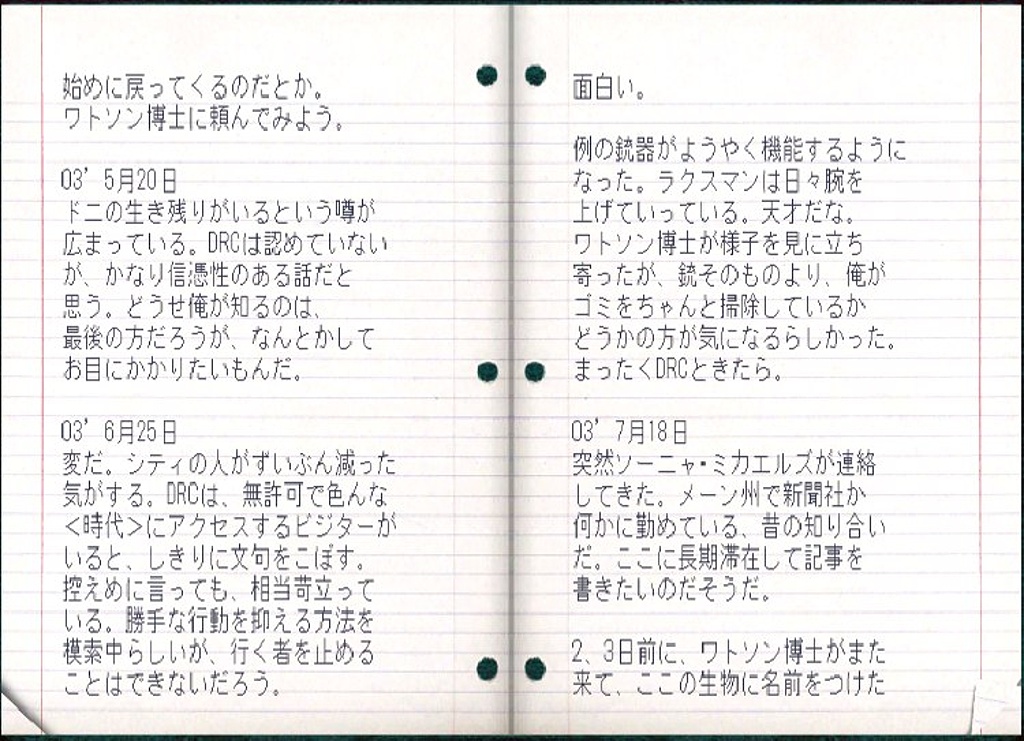 始めに戻ってくるのだとか。
ワトソン博士に頼んでみよう。
03’ 5月20日
ドニの生き残りがいるという噂が
広まっている。DRCは認めていない
が、かなり信憑性のある話だと
思う。どうせ俺が知るのは、
最後の方だろうが、なんとかして
お目にかかりたいもんだ。
03’ 6月25日
変だ。シティの人がずいぶん減った
気がする。DRCは、無許可で色んな
<時代>にアクセスするビジターが
いると、しきりに文句をこぼす。
控えめに言っても、相当苛立って
いる。勝手な行動を抑える方法を
模索中らしいが、行く者を止める
ことはできないだろう。
面白い。
例の銃器がようやく機能するように
なった。ラクスマンは日々腕を
上げていっている。天才だな。
ワトソン博士が様子を見に立ち
寄ったが、銃そのものより、俺が
ゴミをちゃんと掃除しているか
どうかの方が気になるらしかった。
まったくDRCときたら。
03’ 7月18日
突然ソーニャ・ミカエルズが連絡
してきた。メーン州で新聞社か
何かに勤めている、昔の知り合い
だ。ここに長期滞在して記事を
書きたいのだそうだ。
2、3日前に、ワトソン博士がまた
来て、ここの生物に名前をつけた